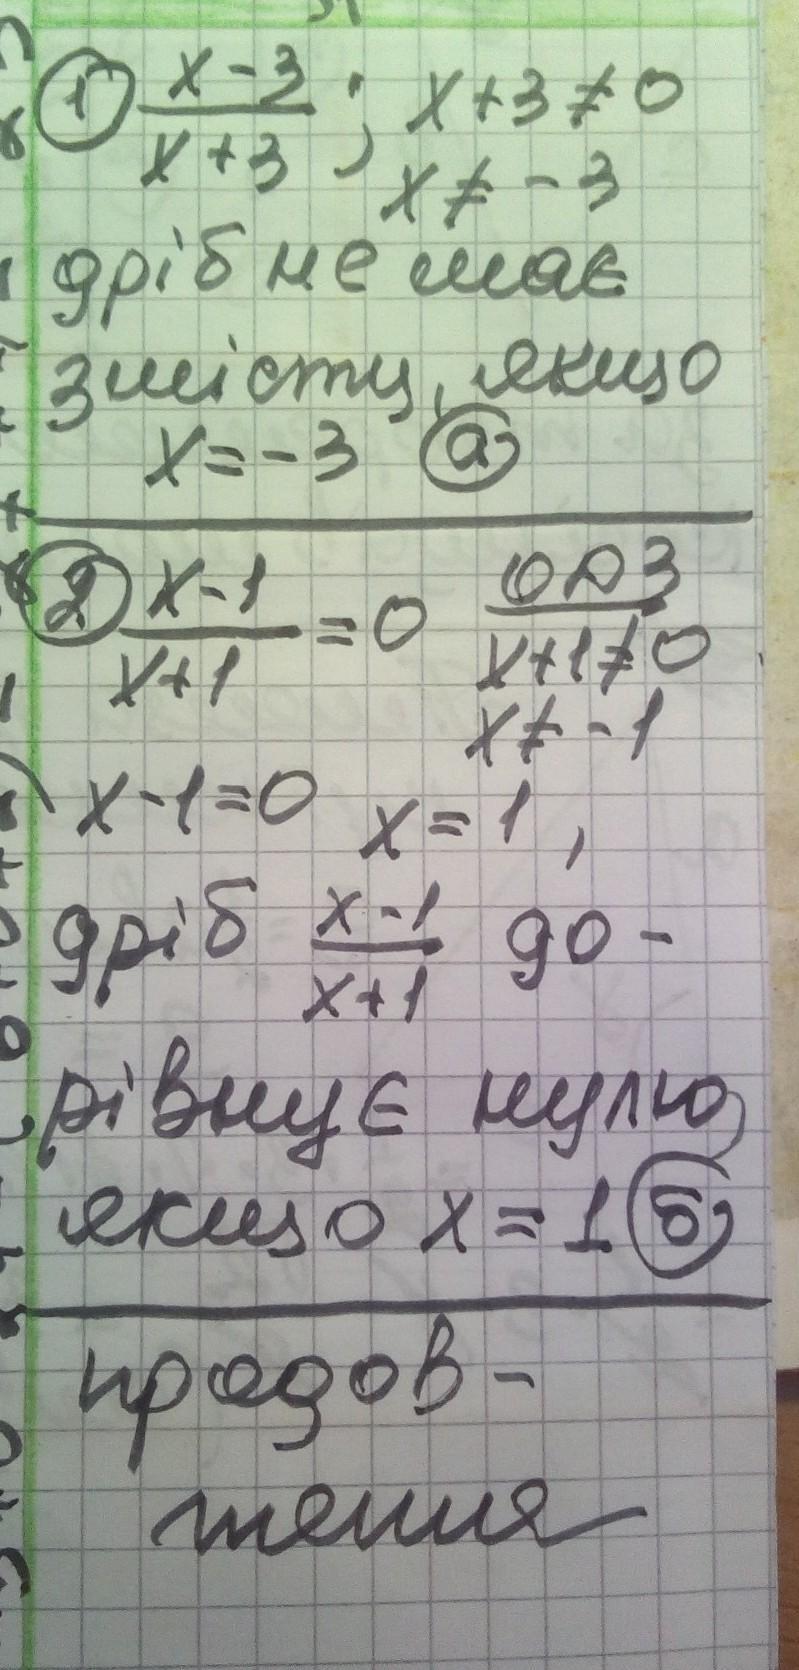 1 x-3/x+3 ; x+3≠0
x≠-3
дріб не має
змісту, якщо
x=-3 а
2 x-1/x+1 =0 ОДЗ
x+1≠0
x≠-1
x-1=0 x=1,
дріб x-1/x+1 до-
рівнує нулю,
якщо x=1 б
продов-
ження